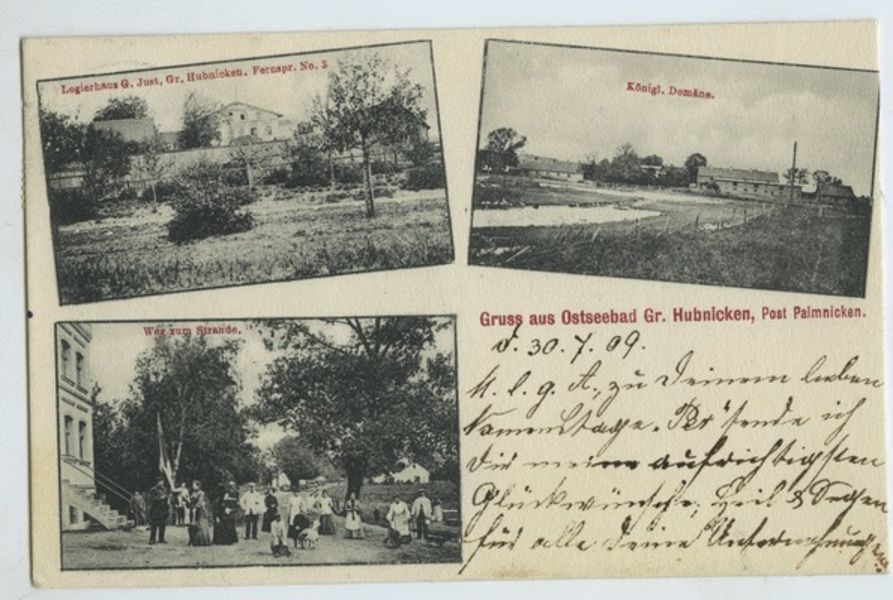 Logierhaus G. Just, Gr. Hubnicken. Fernspr. No. 3
Königl. Domäne.
Weg zum Strande.
Gruss aus Ostseebad Gr. Hubnicken, Post Palmnicken.
d. 30.7.09.
M. l. g. A., zu Deinem lieben
Namenstage. sende ich
Dir meine aufrichtigsten
Glückwünsche, Heil & Segen
für alle Deine